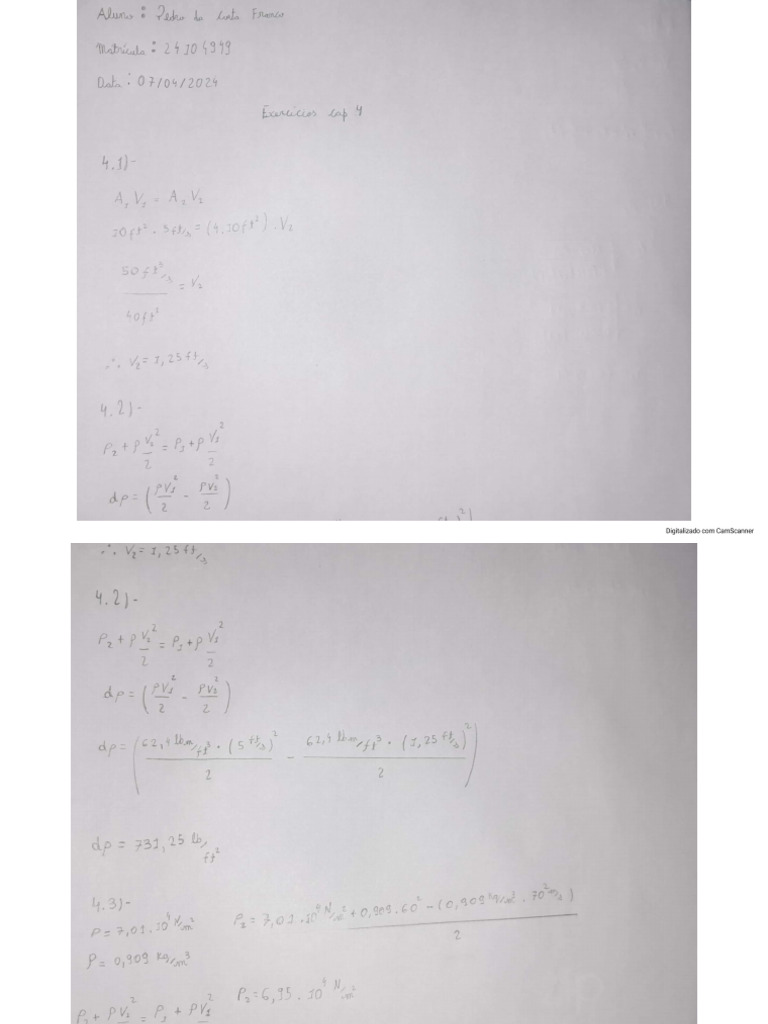 Aluno: Pedro da Costa Franco
Matrícula: 24104949
Data: 07/04/2024
Exercícios cap 4
4.1)-
A₁V₁ = A₂V₂
10ft² · 5ft/s = (4.10ft²) . V₂
50ft³/s / 40ft² = V₂
∴ V₂ = 1,25 ft/s
4.2)-
P₂ + ρ V₂²/2 = P₁ + ρ V₁²/2
dρ = (ρV₁²/2 - ρV₂²/2)
Digitalizado com CamScanner
∴ V₂ = 1,25 ft/s
4.2)-
P₂ + ρ V₂²/2 = P₁ + ρ V₁²/2
dρ = (ρV₁²/2 - ρV₂²/2)
dρ = (62,4 lbm/ft³ · (5 ft/s)²/2 - 62,4 lbm/ft³ · (1,25 ft/s)²/2)
dρ = 731,25 lb/ft²
4.3)-
P = 7,01.10⁴ N/m²
ρ = 0,909 kg/m³
P₂ = 7,01.10⁴ N/m² + 0,909.60² - (0,909 kg/m³ . 70² m/s) / 2
P₂ = 6,95.10⁴ N/m²
P₂ + ρV₂²= P₁ + ρV₁²